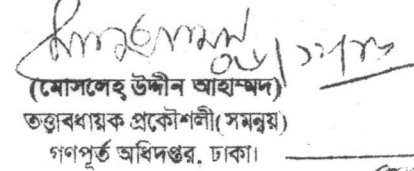 (মোসলেহ উদ্দীন আহাম্মদ)
তত্তাবধায়ক প্রকৌশলী(সমন্বয়)
গণপূর্ত অধিদপ্তর, ঢাকা।